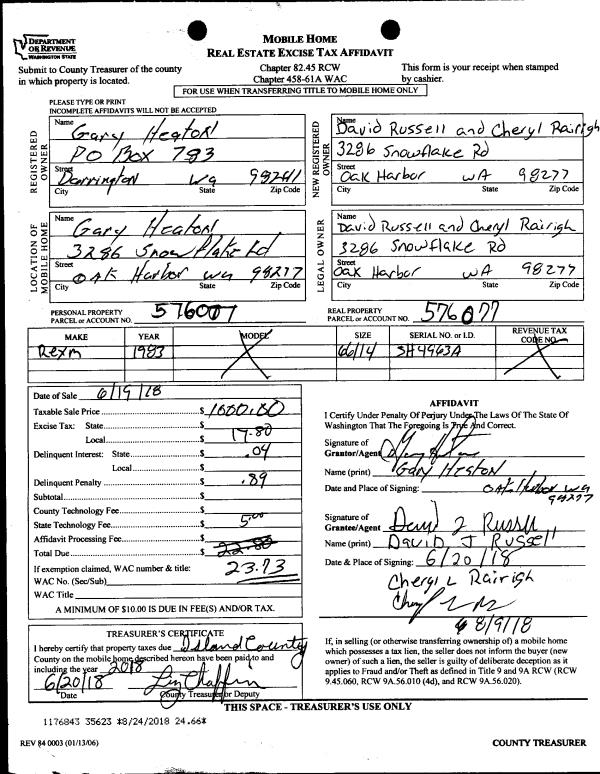 DEPARTMENT
OF REVENUE
WASHINGTON STATE
MOBILE HOME
REAL ESTATE EXCISE TAX AFFIDAVIT
Submit to County Treasurer of the county
in which property is located.
Chapter 82.45 RCW
Chapter 458-61A WAC
This form is your receipt when stamped
by cashier.
FOR USE WHEN TRANSFERRING TITLE TO MOBILE HOME ONLY
PLEASE TYPE OR PRINT
INCOMPLETE AFFIDAVITS WILL NOT BE ACCEPTED
REGISTERED OWNER
Name
Gary Heaton
PO Box 783
Street
Darrington wa 98241
City State Zip Code
NEW REGISTERED OWNER
Name
David Russell and Cheryl Rairigh
3286 Snowflake Rd
Street
Oak Harbor WA 98277
City State Zip Code
LOCATION OF MOBILE HOME
Name
Gary Heaton
3286 Snowflake Rd
Street
Oak Harbor wa 98277
City State Zip Code
LEGAL OWNER
Name
David Russell and Cheryl Rairigh
3286 Snowflake Rd
Street
Oak Harbor WA 98277
City State Zip Code
PERSONAL PROPERTY
PARCEL or ACCOUNT NO.
REAL PROPERTY
PARCEL or ACCOUNT NO. 576077
MAKE YEAR MODEL SIZE SERIAL NO. or I.D. REVENUE TAX CODE NO.
Rexm 1983 66/14 SH4963A
Date of Sale 6/19/18
Taxable Sale Price $ 1000.00
Excise Tax: State $
Local 17.80
Delinquent Interest: State .04
Local
Delinquent Penalty $ .89
Subtotal $
County Technology Fee $
State Technology Fee $ 5.00
Affidavit Processing Fee $
Total Due $ 22.80
If exemption claimed, WAC number & title: 23.73
WAC No. (Sec/Sub)
WAC Title
A MINIMUM OF $10.00 IS DUE IN FEE(S) AND/OR TAX.
AFFIDAVIT
I Certify Under Penalty Of Perjury Under The Laws Of The State Of
Washington That The Foregoing Is True And Correct.
Signature of
Grantor/Agent
Name (print) Gary Heaton
Date and Place of Signing: Oak Harbor wa
98277
Signature of
Grantee/Agent David J Russell
Name (print) David J Russell
Date & Place of Signing: 6/20/18
Cheryl L Rairigh
8/9/18
TREASURER'S CERTIFICATE
I hereby certify that property taxes due Island County
County on the mobile home described hereon have been paid to and
including the year 2018
6/20/18
Date County Treasurer or Deputy
If, in selling (or otherwise transferring ownership of) a mobile home
which possesses a tax lien, the seller does not inform the buyer (new
owner) of such a lien, the seller is guilty of deliberate deception as it
applies to Fraud and/or Theft as defined in Title 9 and 9A RCW (RCW
9.45.060, RCW 9A.56.010 (4d), and RCW 9A.56.020).
THIS SPACE - TREASURER'S USE ONLY
1176843 35623 *8/24/2018 24.66*
REV 84 0003 (01/13/06)
COUNTY TREASURER